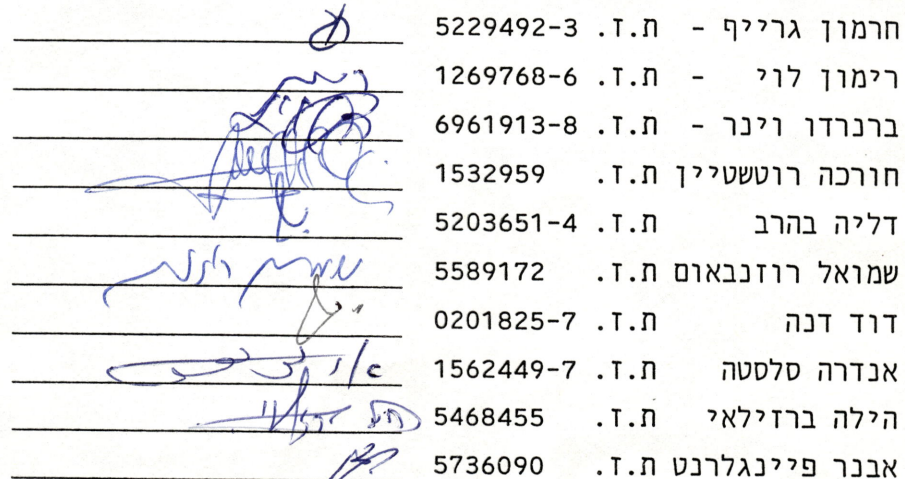 חרמון גרייף - ת.ז. 5229492-3
רימון לוי - ת.ז. 1269768-6
ברנרדו וינר - ת.ז. 6961913-8
חורכה רוטשטיין ת.ז. 1532959
דליה בהרב ת.ז. 5203651-4
שמואל רוזנבאום ת.ז. 5589172
דוד דנה ת.ז. 0201825-7
אנדרה סלסטה ת.ז. 1562449-7
הילה ברזילאי ת.ז. 5468455
אבנר פיינגלרנט ת.ז. 5736090